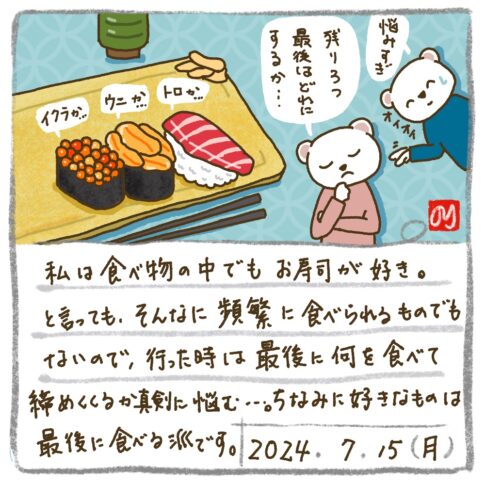 悩みすぎ
残り3つ
最後はどれに
するか…
トロか…
ウニか…
イクラか…
オイオイ
私は食べ物の中でもお寿司が好き。
と言っても、そんなに頻繁に食べられるものでも
ないので、行った時は最後に何を食べて
締めくくるか真剣に悩む…。ちなみに好きなものは
最後に食べる派です。
2024. 7. 15(月)